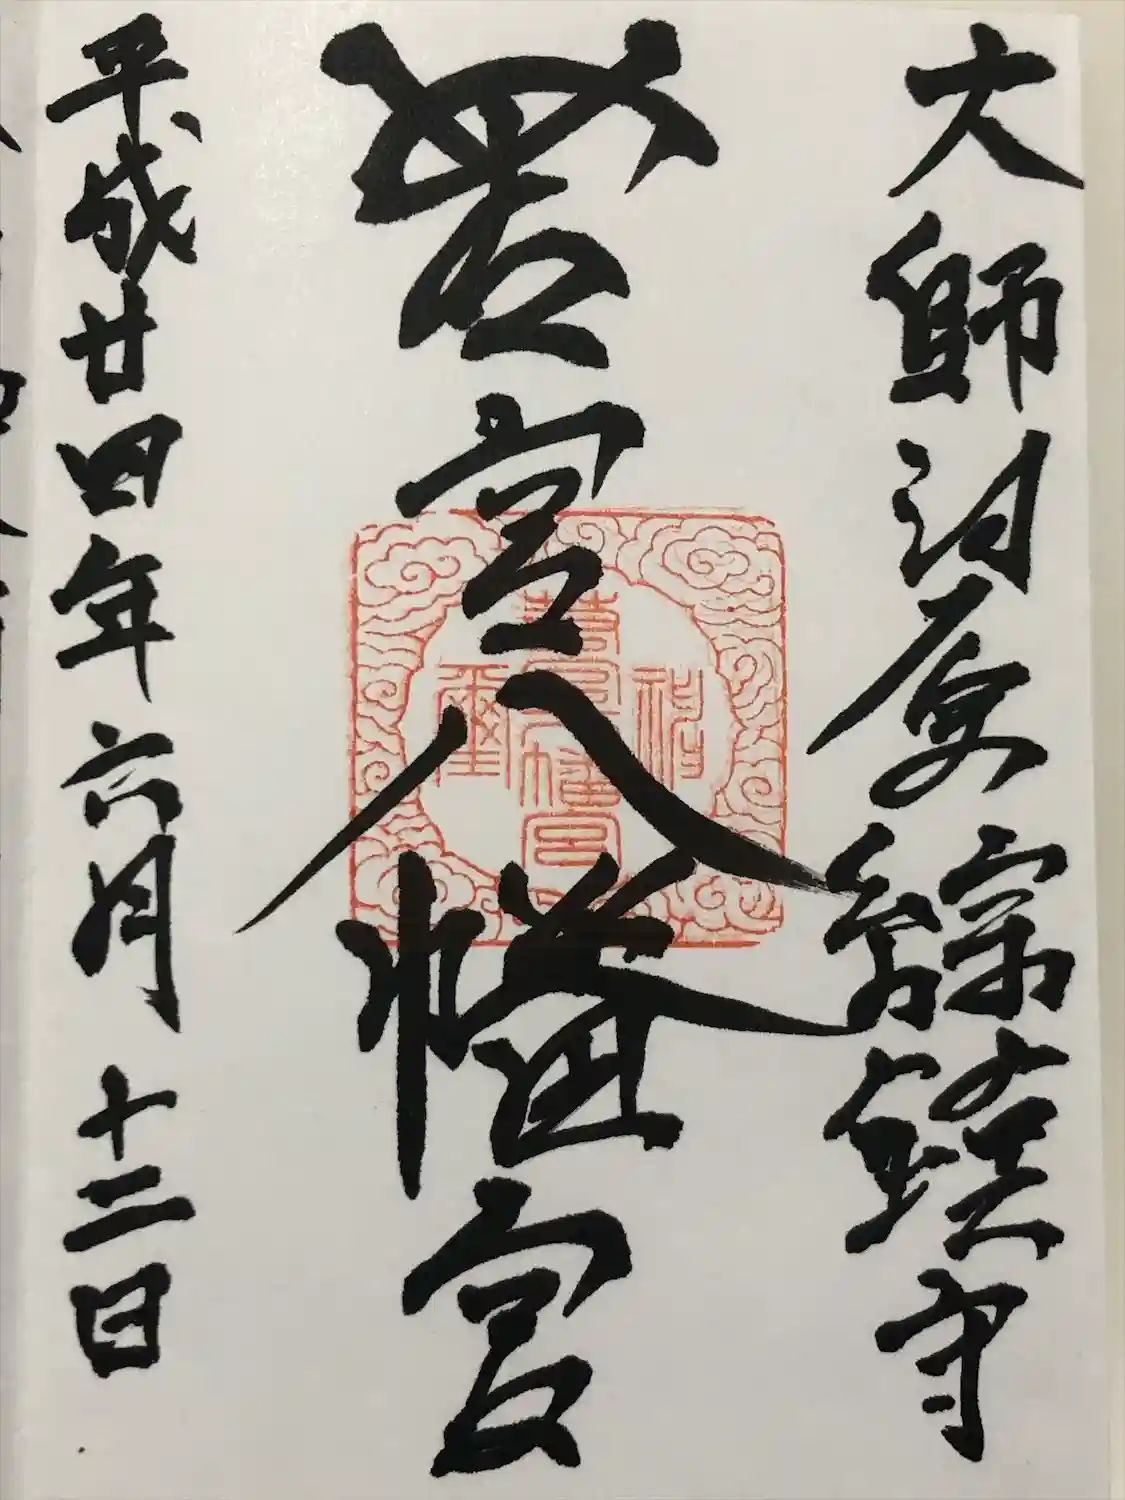 大師河原綜鎮守
若宮八幡宮
平成廿四年六月十二日
若宮八幡宮